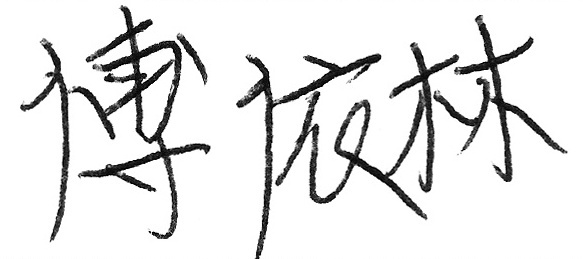 傅依林